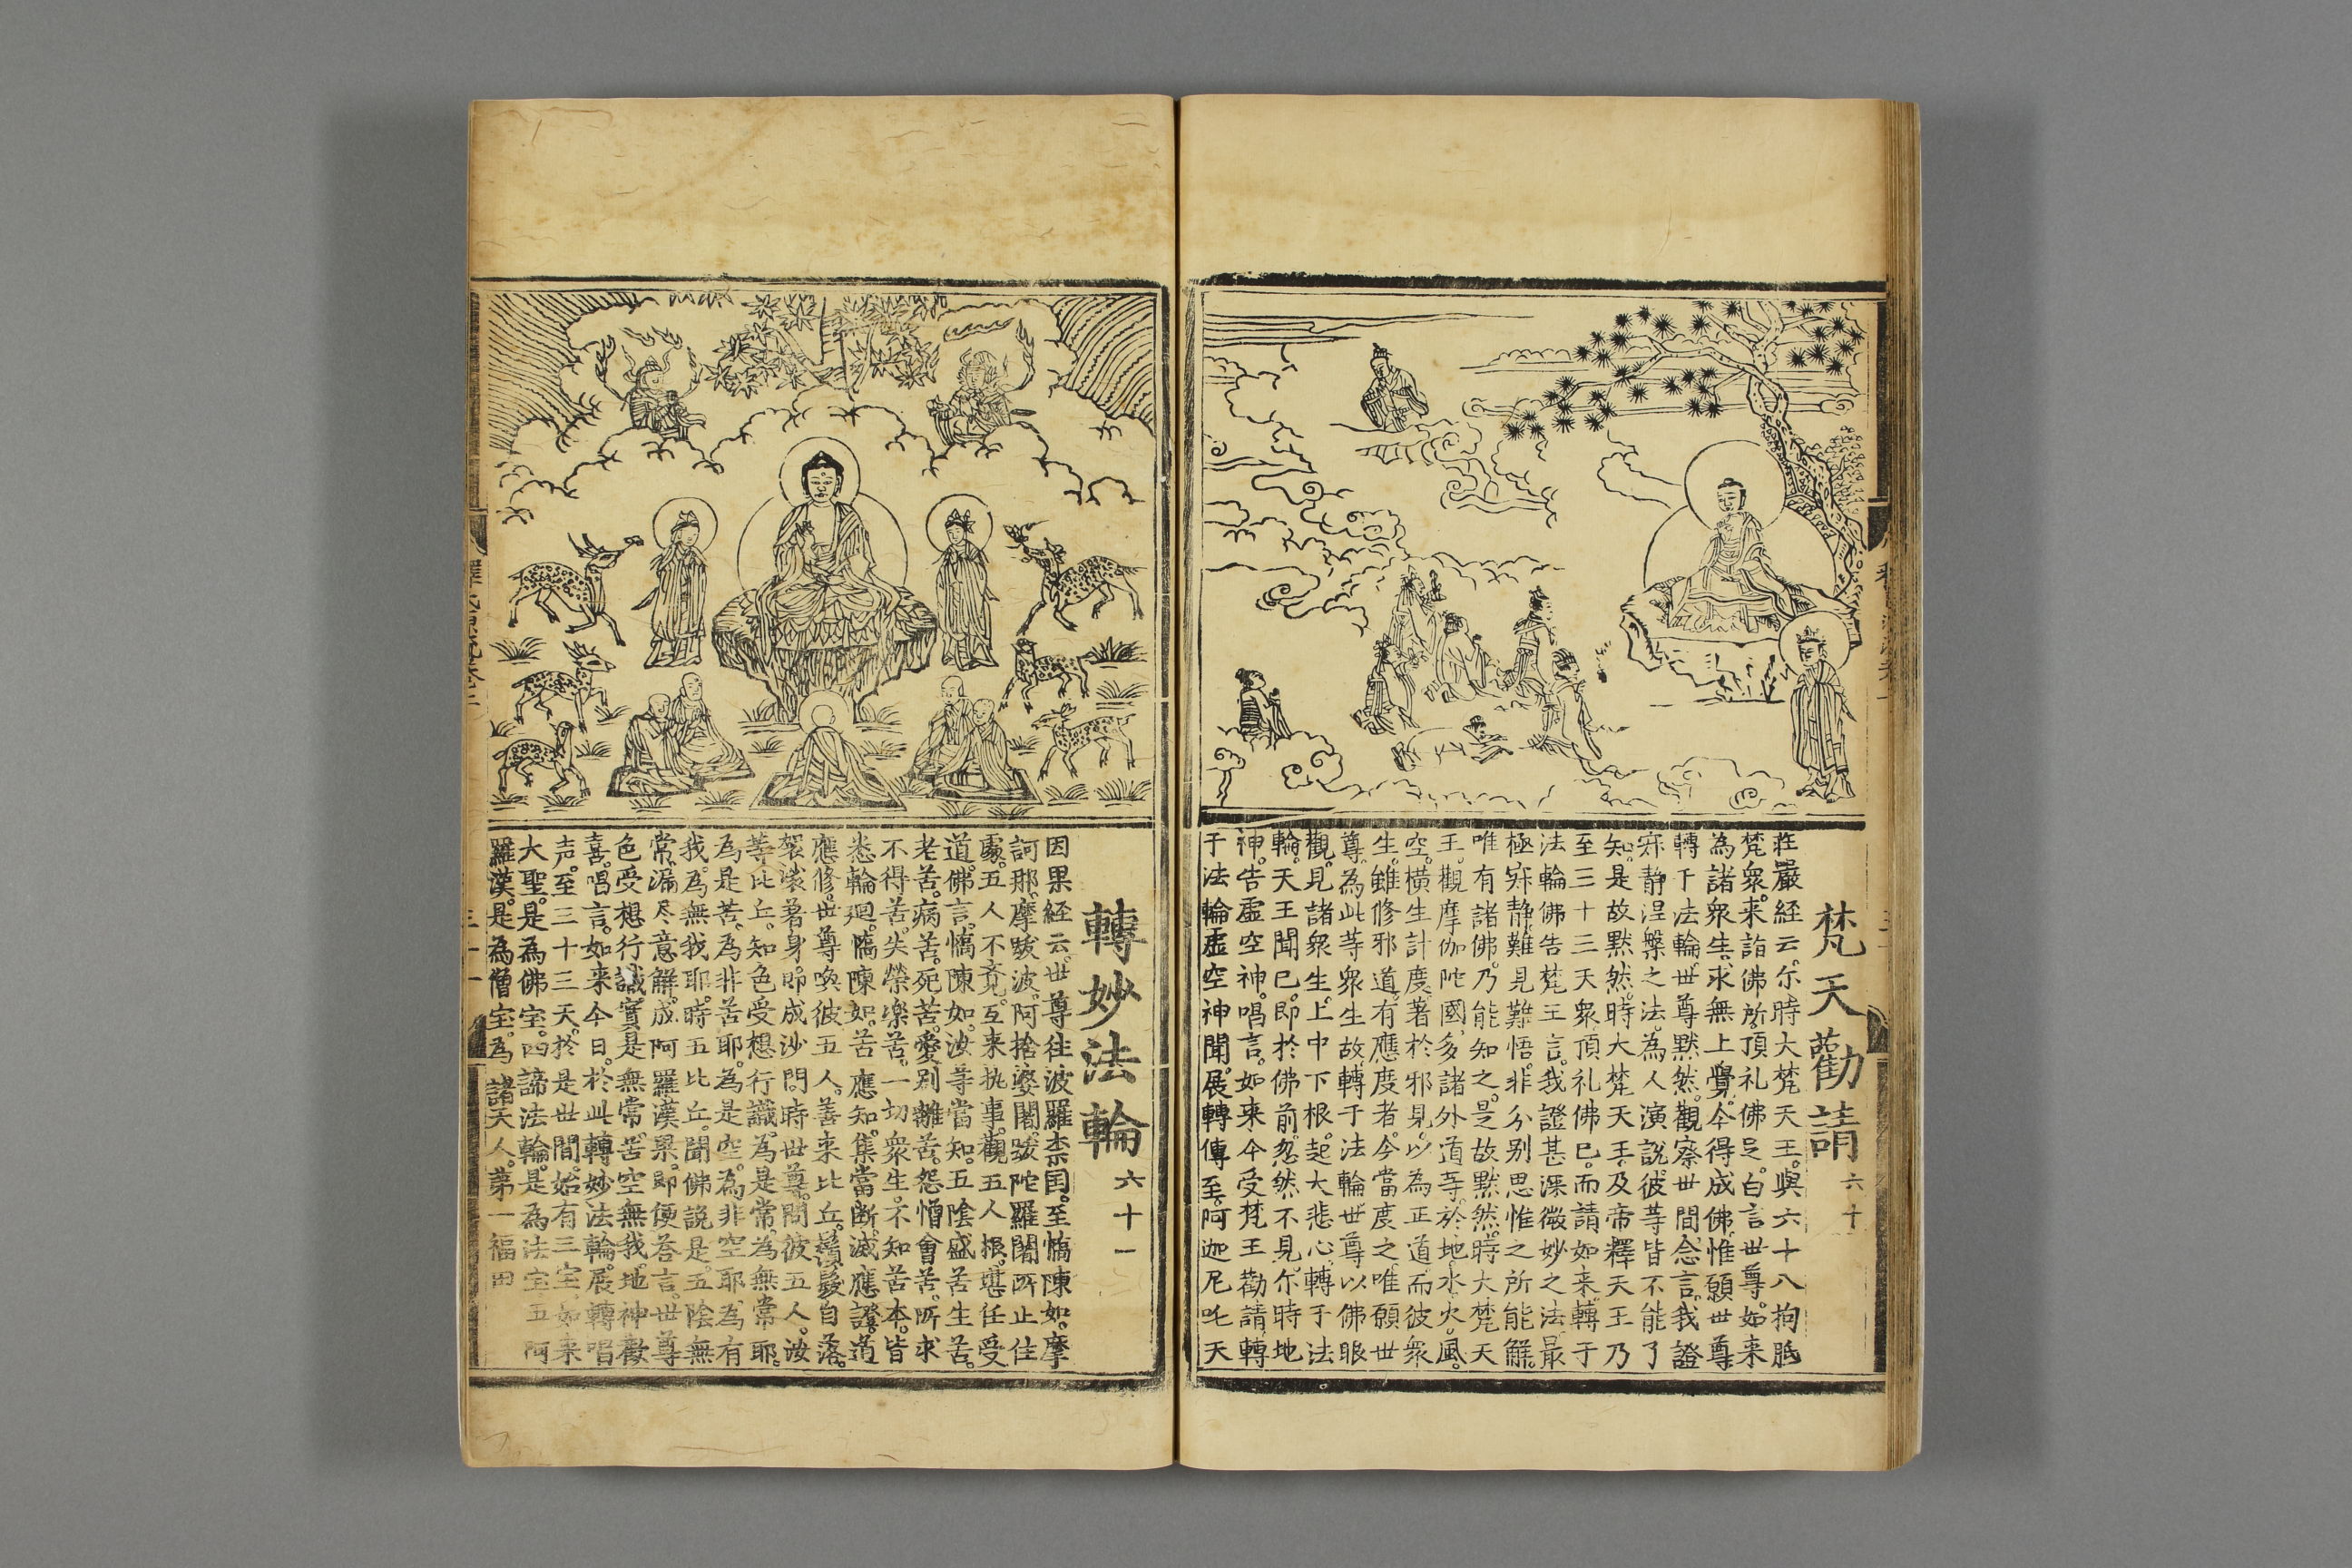 梵天勸請 六十
莊嚴経云。尓時大梵天王。與六十八拘胝
梵衆。来詣佛所。頂礼佛足。白言。世尊。如来
為諸衆生。求無上覺。今得成佛。惟願世尊
轉于法輪。世尊默然。觀察世間。念言。我證
寂静涅槃之法。為人演說。彼等皆不能了
知。是故默然。時大梵天王。及帝釋天王。乃
至三十三天衆。頂礼佛已。而請如来。轉于
法輪。佛告梵王言。我證甚深微妙之法。最
極寂静。難見難悟。非分别思惟之所能解。
唯有諸佛。乃能知之。是故默然。時大梵天
王。觀摩伽陀國。多諸外道等。於地。水。火。風。
空。横生計度。著於邪見。以為正道。而彼衆
生。雖修邪道。有應度者。今當度之。唯願世
尊。為此等衆生故。轉于法輪。世尊以佛眼
觀。見諸衆生。上中下根。起大悲心。轉于法
輪。天王聞已。即於佛前。忽然不見。尓時地
神。告虛空神。唱言。如来今受梵王勸請。轉
于法輪。虛空神聞。展轉傳至。阿迦尼吒天
轉妙法輪 六十一
因果経云。世尊往波羅柰囯。至憍陳如。摩
訶那。摩跋波。阿捨婆闍。跋陀羅闍。所止住
處。五人不覺。互来执事。觀五人根。堪任受
道。佛言。憍陳如。汝等當知。五陰盛苦。生苦。
老苦。病苦。死苦。愛别離苦。怨憎會苦。所求
不得苦。失榮樂苦。一切衆生。不知苦本。皆
悉輪廻。憍陳如。苦應知。集當断。滅應證。道
應修。世尊喚彼五人。善来比丘。鬚髮自落。
袈裟著身。即成沙門。時世尊。問彼五人。汝
等比丘。知色受想行識。為是常。為無常耶。
為是苦。為非苦耶。為是空。為非空耶。為有
我。為無我耶。時五比丘。聞佛說是。五陰無
常。漏尽意解。成阿羅漢果。即便荅言。世尊
色受想行識。實是無常。苦空無我。地神歡
喜。唱言。如来今日。於此轉妙法輪。展轉唱
声。至三十三天。於是世間。始有三宝。如来
大聖。是為佛宝。四諦法輪。是為法宝。五阿
羅漢。是為僧宝。為諸天人。第一福田